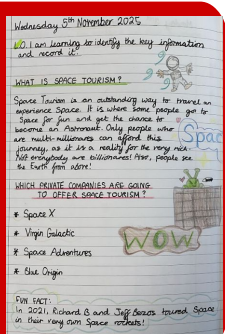 Wednesday 5th November 2025
LO: I am learning to identify the key information
and record it.
WHAT IS SPACE TOURISM?
Space Tourism is an outstanding way to travel an
experience Space. It is where some people get to
Space for fun and get the chance to
become an Astronaut. Only people who
are multi-millionares can afford this
journey, as it is a reality for the very rich.
Not everybody are billionares! Also, people see
the Earth from above!
Spac
WHICH PRIVATE COMPANIES ARE GOING
TO OFFER SPACE TOURISM?
* Space X
* Virgin Galactic
* Space Adventures
* Blue Origin
WOW
FUN FACT:
In 2021, Richard B and Jeff Bezos toured Space
in their very own Space rockets!